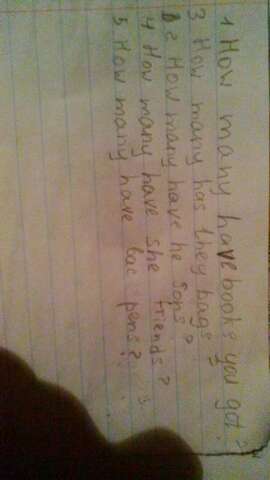 1 How many have books you got?
3 How many has they bags?
2 How many have he sons?
4 How many have she friends?
5 How many have pens?